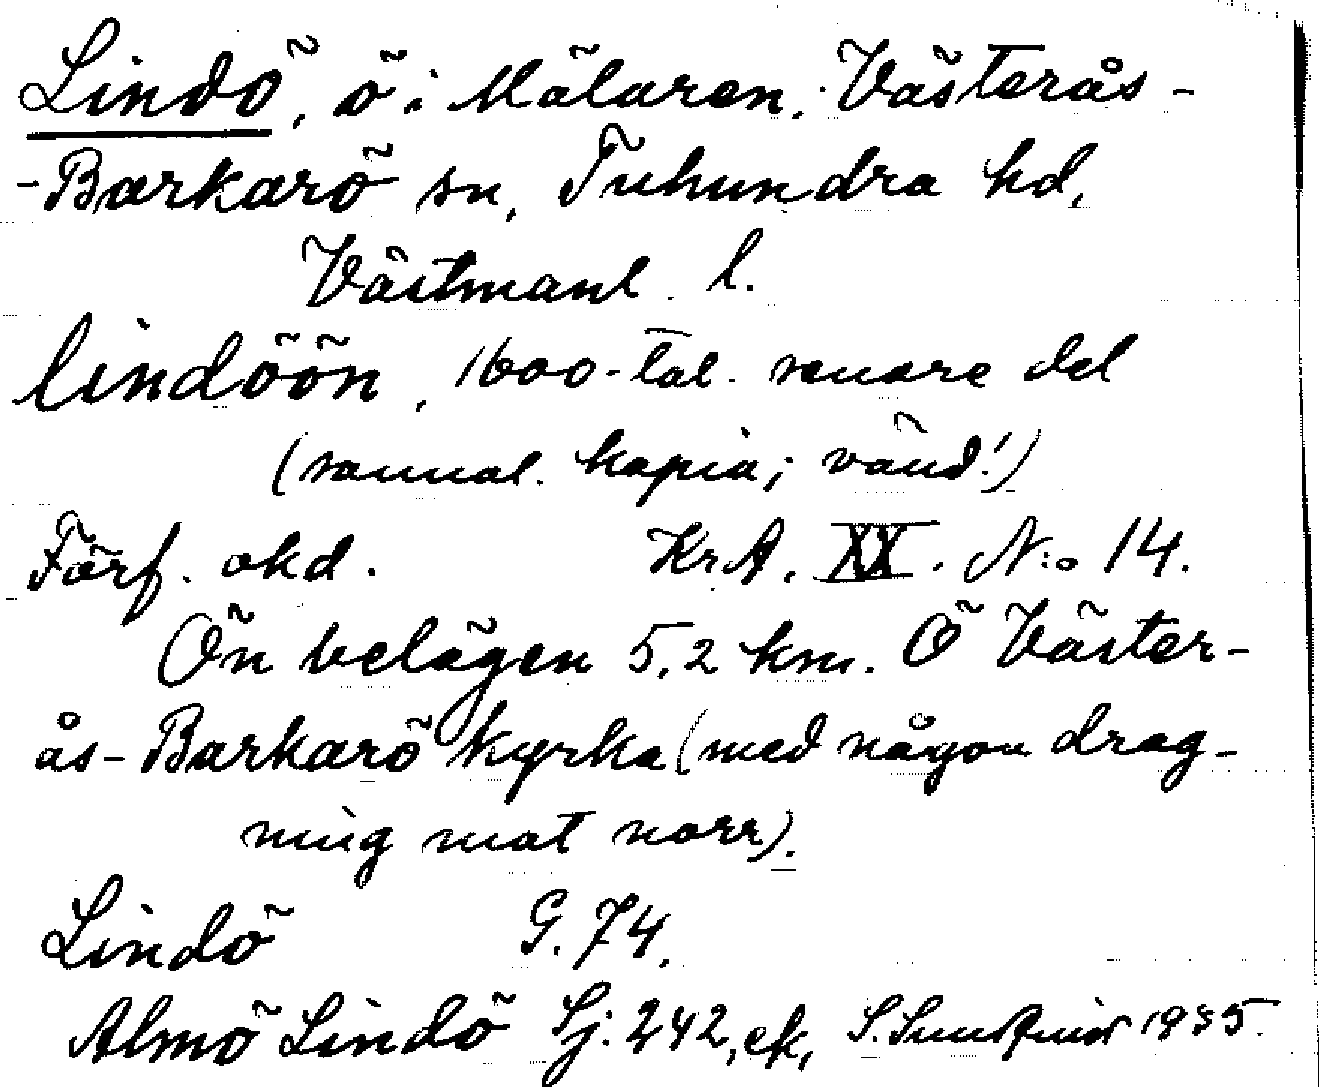 Lindö, ö i Mälaren, Västerås-
-Barkarö sn, Tuhundra hd,
Västmanl. l.
lindöön, 1600-tal. senare del
(samal. kopia; vänd!)
Förf. okd. KrA. XX. N:o 14.
Ön belägen 5,2 km. Ö Väster-
ås-Barkarö kyrka (med någon drag-
ning mot norr).
Lindö G. 74.
Almö Lindö Sj. 242, ek, 1935.